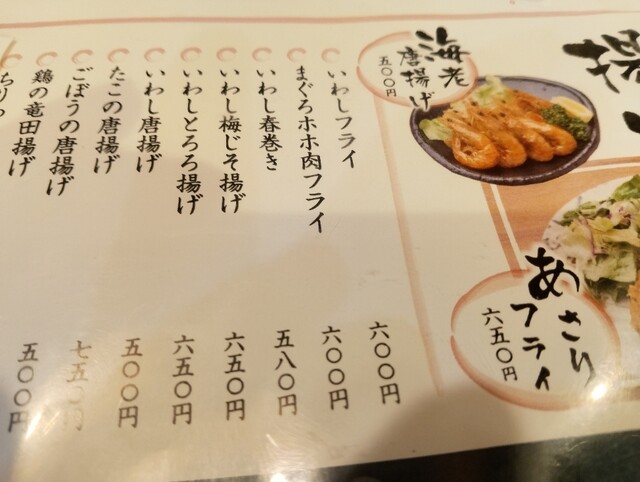 揚
海老
唐揚げ
五〇〇円
あさり
フライ
六五〇円
いわしフライ 六〇〇円
まぐろホホ肉フライ 六〇〇円
いわし春巻き 五八〇円
いわし梅じそ揚げ 六五〇円
いわしとろろ揚げ 六五〇円
いわし唐揚げ 五〇〇円
たこの唐揚げ 七五〇円
ごぼうの唐揚げ 五〇〇円
鶏の竜田揚げ